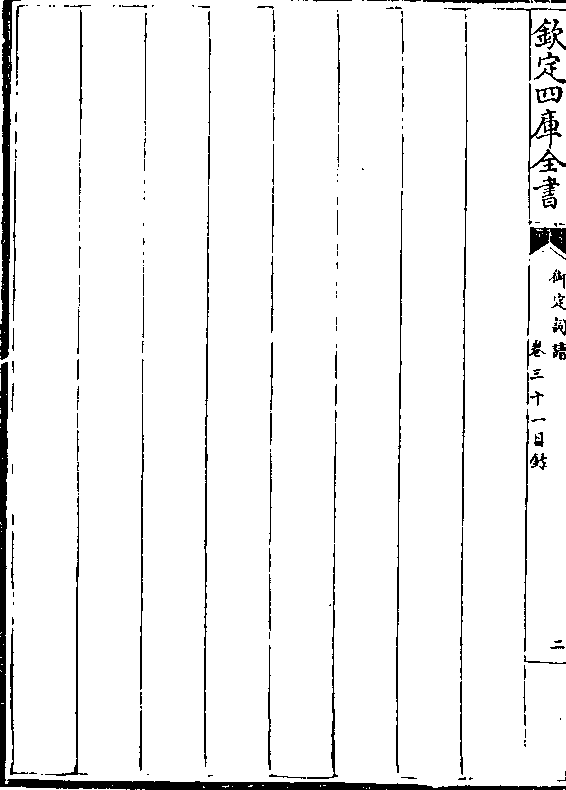 欽定四庫全書
御定詞譜
卷三十一目錄
二